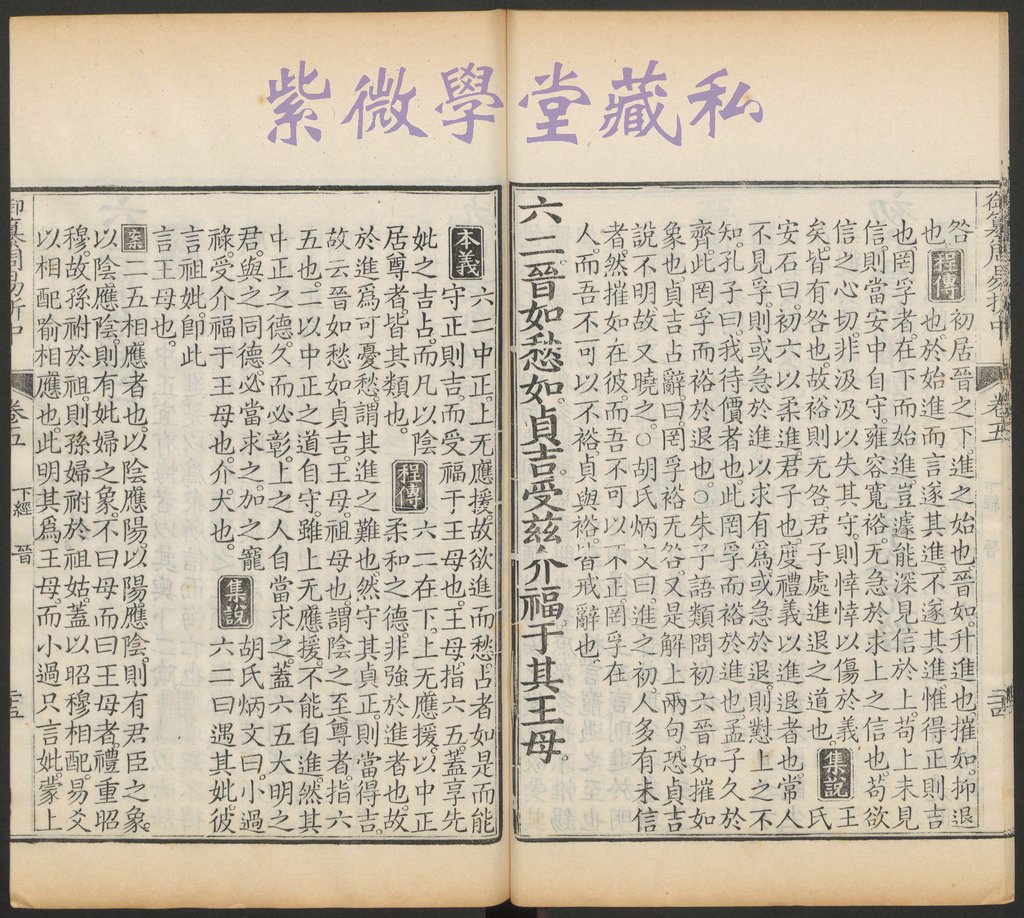 紫微學堂藏私
咎。初居晉之下。進之始也。晉如。升進也。摧如。抑退
也。程傳也。於始進而言遂其進。不遂其進。惟得正則吉
也。罔孚者。在下而始進。豈遽能深見信於上。苟上未見
信。則當安中自守。雍容寬裕。无急於求上之信也。苟欲
信之心切。非汲汲以失其守。則悻悻以傷於義
矣。皆有咎也。故裕則无咎。君子處進退之道也。集說王氏
安石曰。初六以柔進。君子也。度禮義以進退者也。常人
不見孚。則或急於進以求有爲。或急於退。則懟上之不
知。孔子曰。我待價者也。此罔孚而裕於進也。孟子久於
齊。此罔孚而裕於退也。○朱子語類問初六晉如摧如
象也。貞吉占辭。曰。罔孚裕无咎。又是解上兩句。恐貞吉
說不明。故又曉之。○胡氏炳文曰。進之初。人多有未信
者。然摧如在彼。而吾不可以不正。罔孚在
人。而吾不可以不裕。貞與裕。皆戒辭也。
六二晉如愁如。貞吉。受茲介福于其王母。
本義六二中正。上无應援。故欲進而愁。占者如是而能
守正則吉。而受福于王母也。王母。指六五。蓋享先
妣之吉占。而凡以陰
居尊者。皆其類也。程傳六二在下。上无應援。以中正
柔和之德。非強於進者也。故
於進爲可憂愁。謂其進之難也。然守其貞正。則當得吉。
故云晉如愁如貞吉。王母。祖母也。謂陰之至尊者。指六
五也。二以中正之道自守。雖上无應援。不能自進。然其
中正之德。久而必彰。上之人自當求之。蓋六五大明之
君。與之同德。必當求之。加之寵
祿。受介福于王母也。介。大也。集說胡氏炳文曰。小過
六二曰遇其妣。彼
言祖妣。卽此
言王母也。
案二五相應者也。以陰應陽。以陽應陰。則有君臣之象。
以陰應陰。則有妣婦之象。不曰母而曰王母者。禮重昭
穆。故孫祔於祖。則孫婦祔於祖姑。蓋以昭穆相配。易爻
以相配喻相應也。此明其爲王母。而小過只言妣。蒙上
卷五
下經
晉